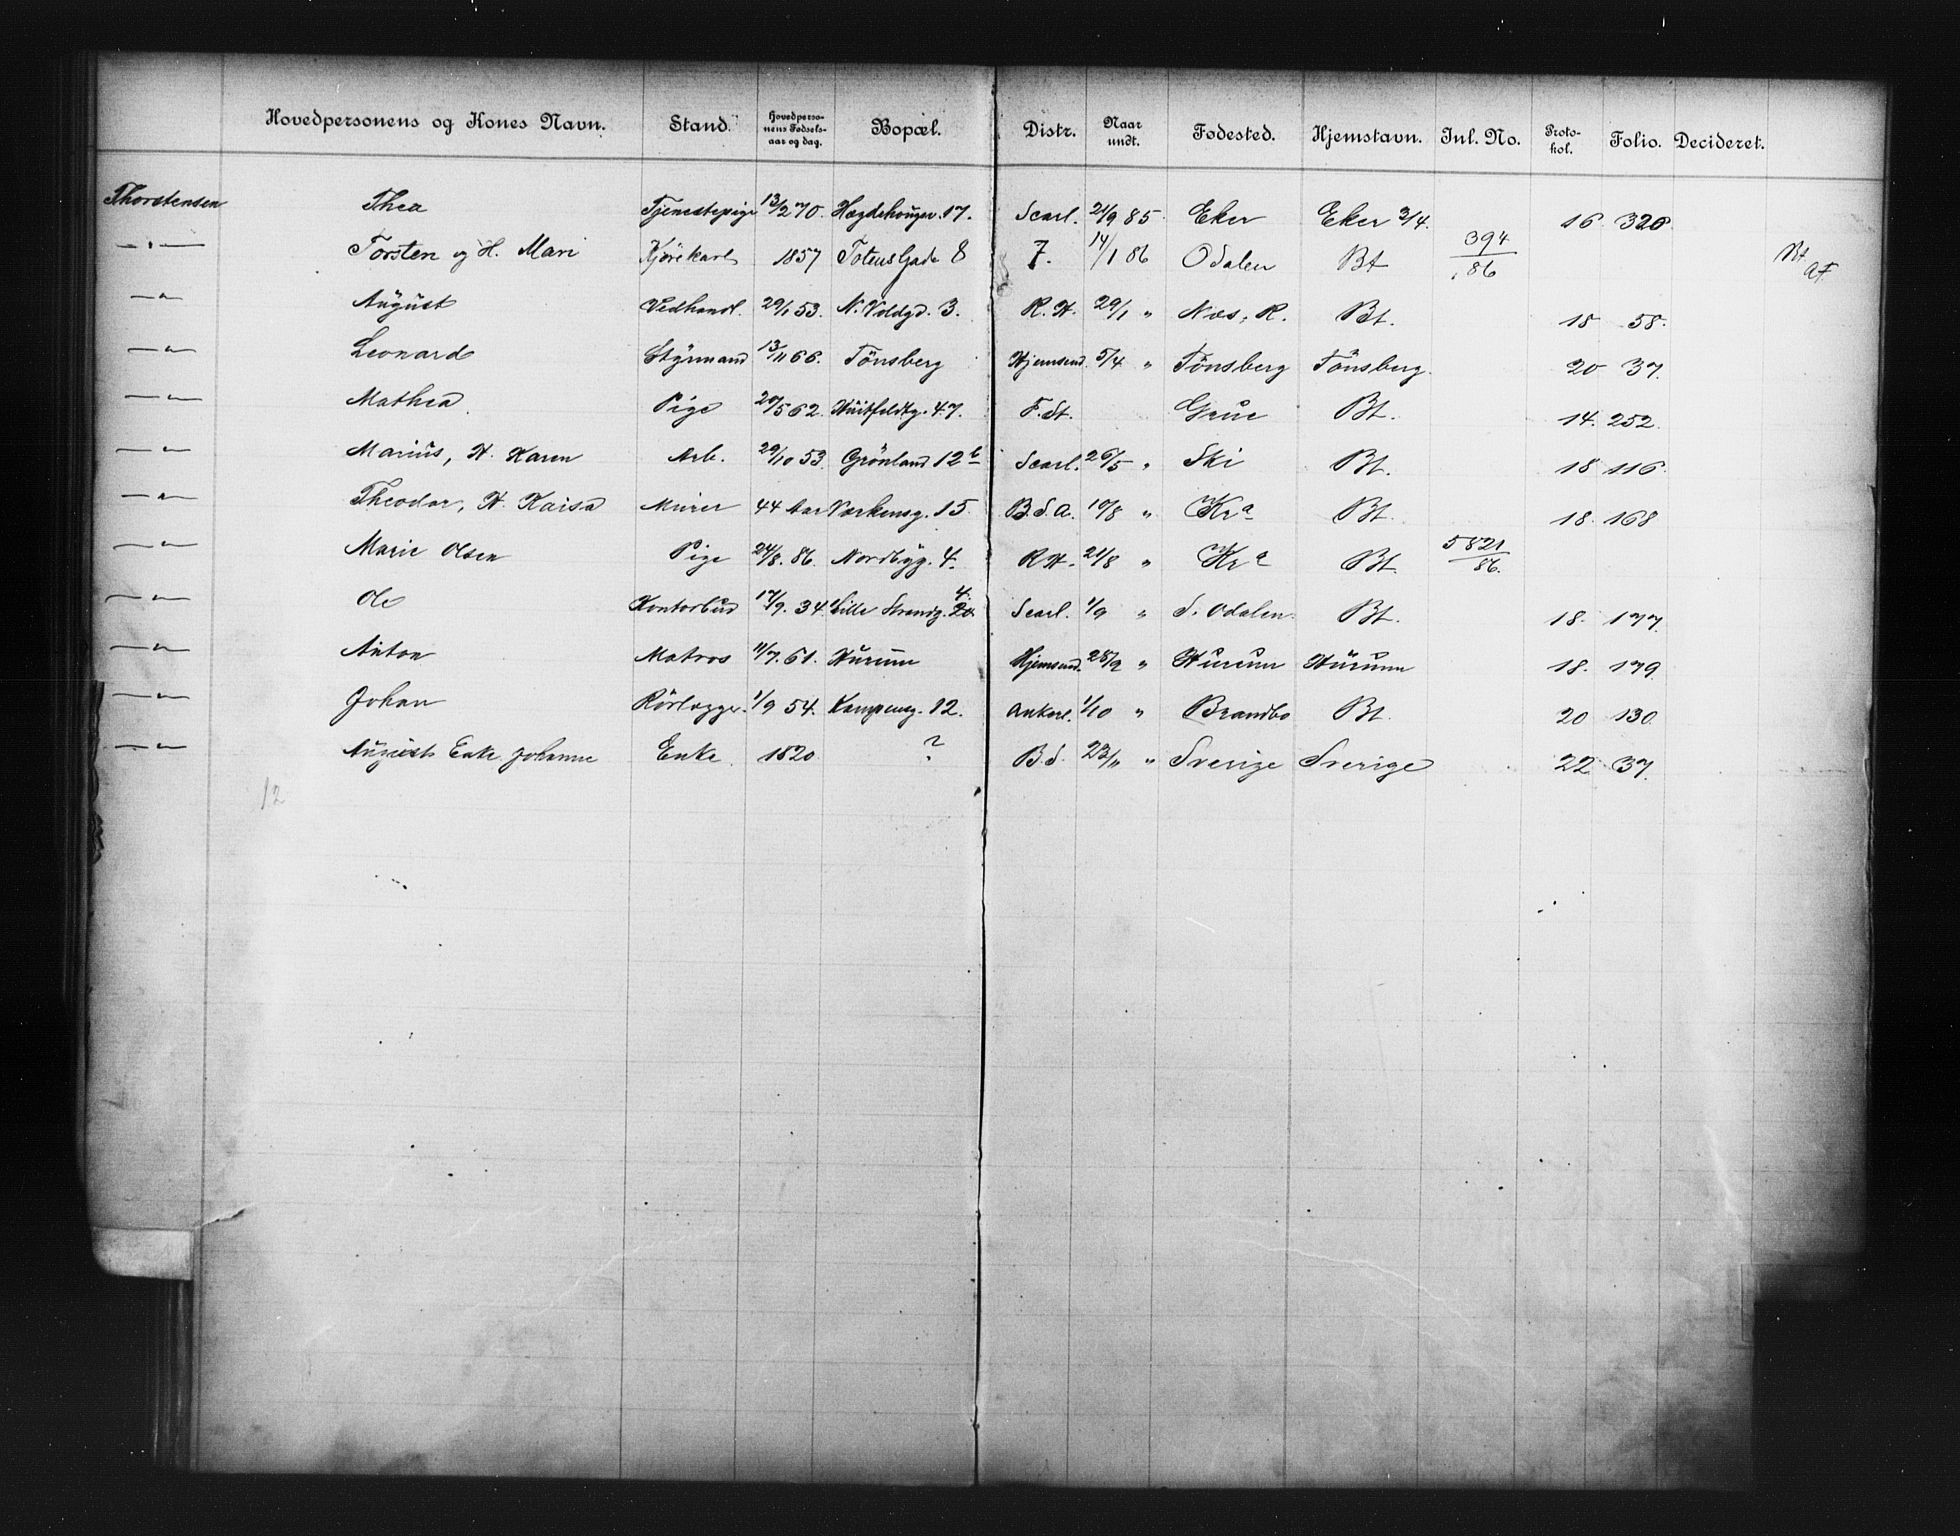 Hovedpersonens og Kones Navn. Stand. Hovedpersonens Fødselsaar og dag. Bopæl. Distr. Naar undt. Fodested. Hjemstavn. Jnl. No. Protokol. Folio. Decideret.
Thorstensen Thea Tjenestepige 13/2 70. Hægdehougsv. 17. Scarl. 21/9 85. Eker Eker 3/4. 16. 320.
—"— Torsten og H. Mari Kjørekarl 1857 Totens Gade 8 7. 14/1 86 Odalen Bt 394/86 Bt
—"— August Vedhandl. 29/1 53. N. Voldgd. 3. R.H. 29/1 " Næs, R. Bt. 18 58.
—"— Leonard Styrmand 13/11 66. Tönsberg Hjemsend. 5/4 " Tönsberg Tönsberg. 20 37.
—"— Mathea Pige 20/5 62. Huitfeldtg. 47. F. St. Grue Bt. 14. 252.
—"— Marius, H. Karen Arb. 29/10 53 Grönland 12 b Scarl. 26/5 " Ski Bt. 18 116.
—"— Theodor, H. Kaisa Murer 44 AarVærkensg. 15. B.S.A. 10/8 " Kra Bt. 18. 168
—"— Marie Olsen Pige 24/8. 86. Nordbyg. 4. R.H. 21/8 " Kra Bt. 5821/86.
—"— Ole Kontorbud 17/9. 34. Lille Strandg. 4. Scarl. 1/9 " S. Odalen Bt. 18. 177.
—"— Anton Matros 11/7. 61. Hurum Hjemsend. 28/9 " Hurum Hurum 18. 179.
—"— Johan Rörlægger. 1/9 54. Kampensg. 12. Ankerl. 1/10 " Brandbo Bt. 20 130.
—"— Augusts Enke Johanne Enke 1820 ? B.S. 23/11 " Sverige Sverige 22 37.
12